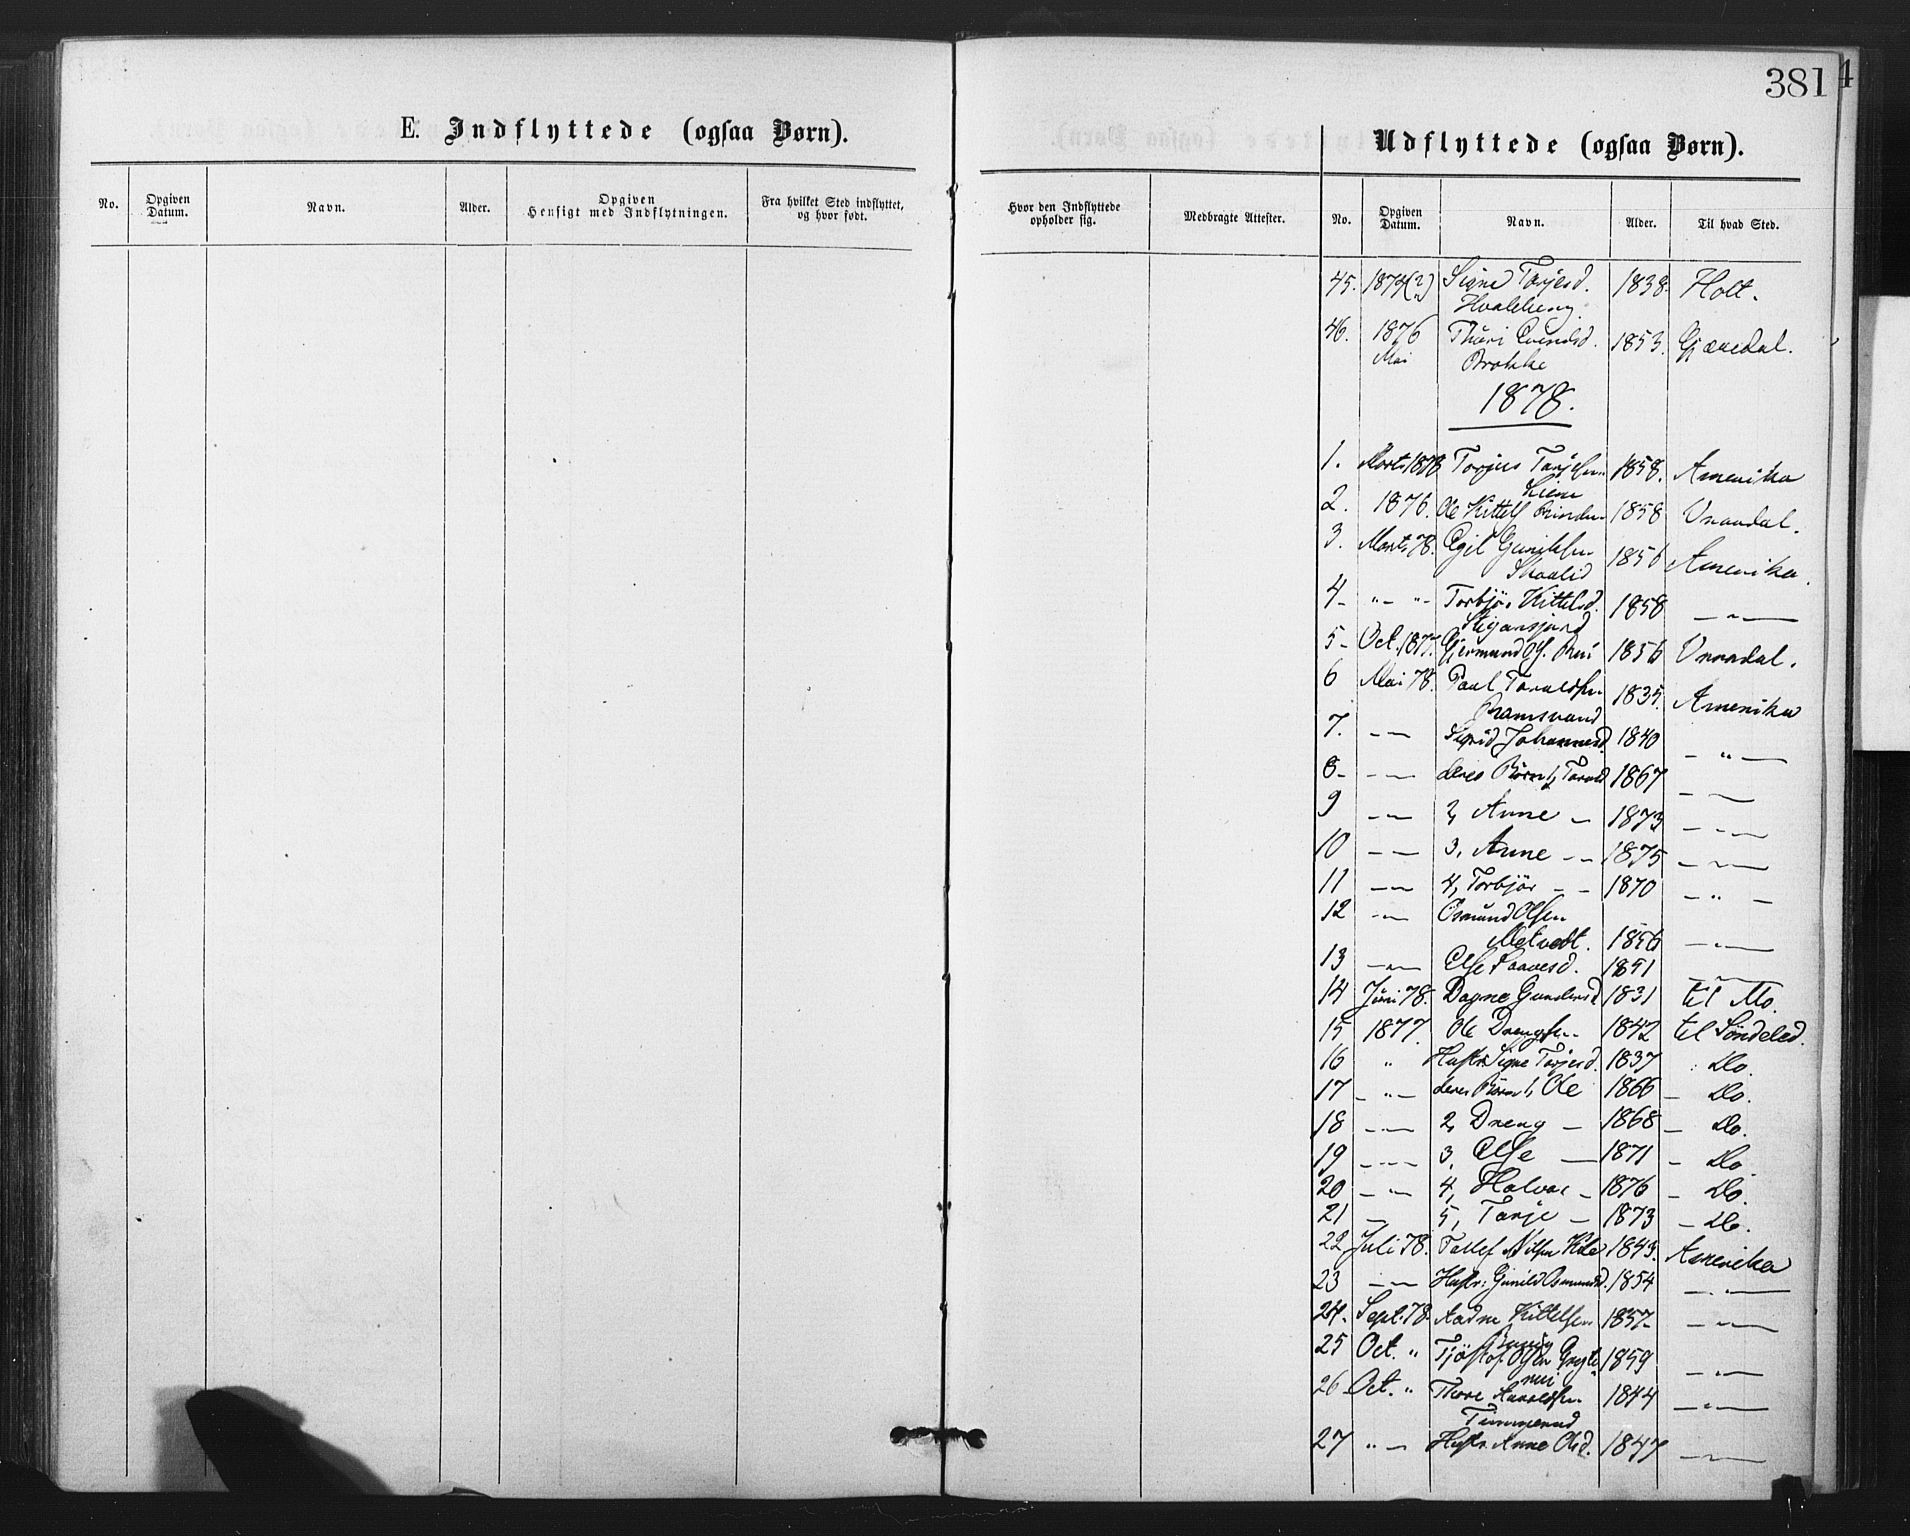 381
4
E. Indflyttede (ogsaa Børn).
Udflyttede (ogsaa Børn).
No. Opgiven Datum. Navn. Alder. Opgiven Hensigt med Indflytningen. Fra hvilket Sted indflyttet, og hvor født. Hvor den Indflyttede opholder sig. Medbragte Attester. No. Opgiven Datum. Navn. Alder. Til hvad Sted.
45. 1874(?) Signe Tarjesd. 1838. Holt.
46. 1876 Thuri Evindsd. 1853. Gjævedal.
Mai Brokke
1878.
1. Marts 1878 Torjus Tarjesen 1858. Amerika
Liene
2. 1876. Ole Kittels. 1858 Vraadal.
3. Marts 78. Egil Gunilsen 1856 Amerika.
4 - " - " - Torbjør Kittelsd. 1858 - " -
5 - Oct. 1877. Gjermund Ols. 1856 Vraadal.
6 Mai 78. Paul Taraldsen 1835. Amerika
Ramsvand
7. - - Sigrid Johannesd. 1840 - " -
8 - - - deres Børn 1, Tarald 1867 - -
9 - - 2, Anne - 1873 - " -
10 - - 3, Anne - - 1875 - -
11 - - 4, Torbjør - - 1870 - " -
12 - - Osmund Olsen
Metvedt. 1856 - " -
13 - - Else Saavesd. 1851 - -
14 Juni 78. Dagne Gundersd 1831 til Mo.
15 1877. Ole Drengsen 1842 til Søndeled.
16 " Hustr. Signe Tarjesd. 1837 " Do.
17 - " - deres Børn 1, Ole 1866 - Do.
18 - - 2, Dreng - 1868 - Do.
19 - - 3, Else - 1871 - Do.
20 - " - 4, Halvor - 1876 - Do.
21 - 5, Tarje - 1873 - Do.
22 Juli 78. Tallef Nilsen Kile 1843. Amerika
23 - - Hustr: Gunild Osmundsd. 1854 - " -
24. Sept. 78. Aadne Kittelsen 1857 - " -
25 Oct. " Tjøstof Olsen 1859 - " -
26 Oct. " Thore Taraldsen 1844 - " -
27 " - Hustr. Anne Olsd. 1847 - " -